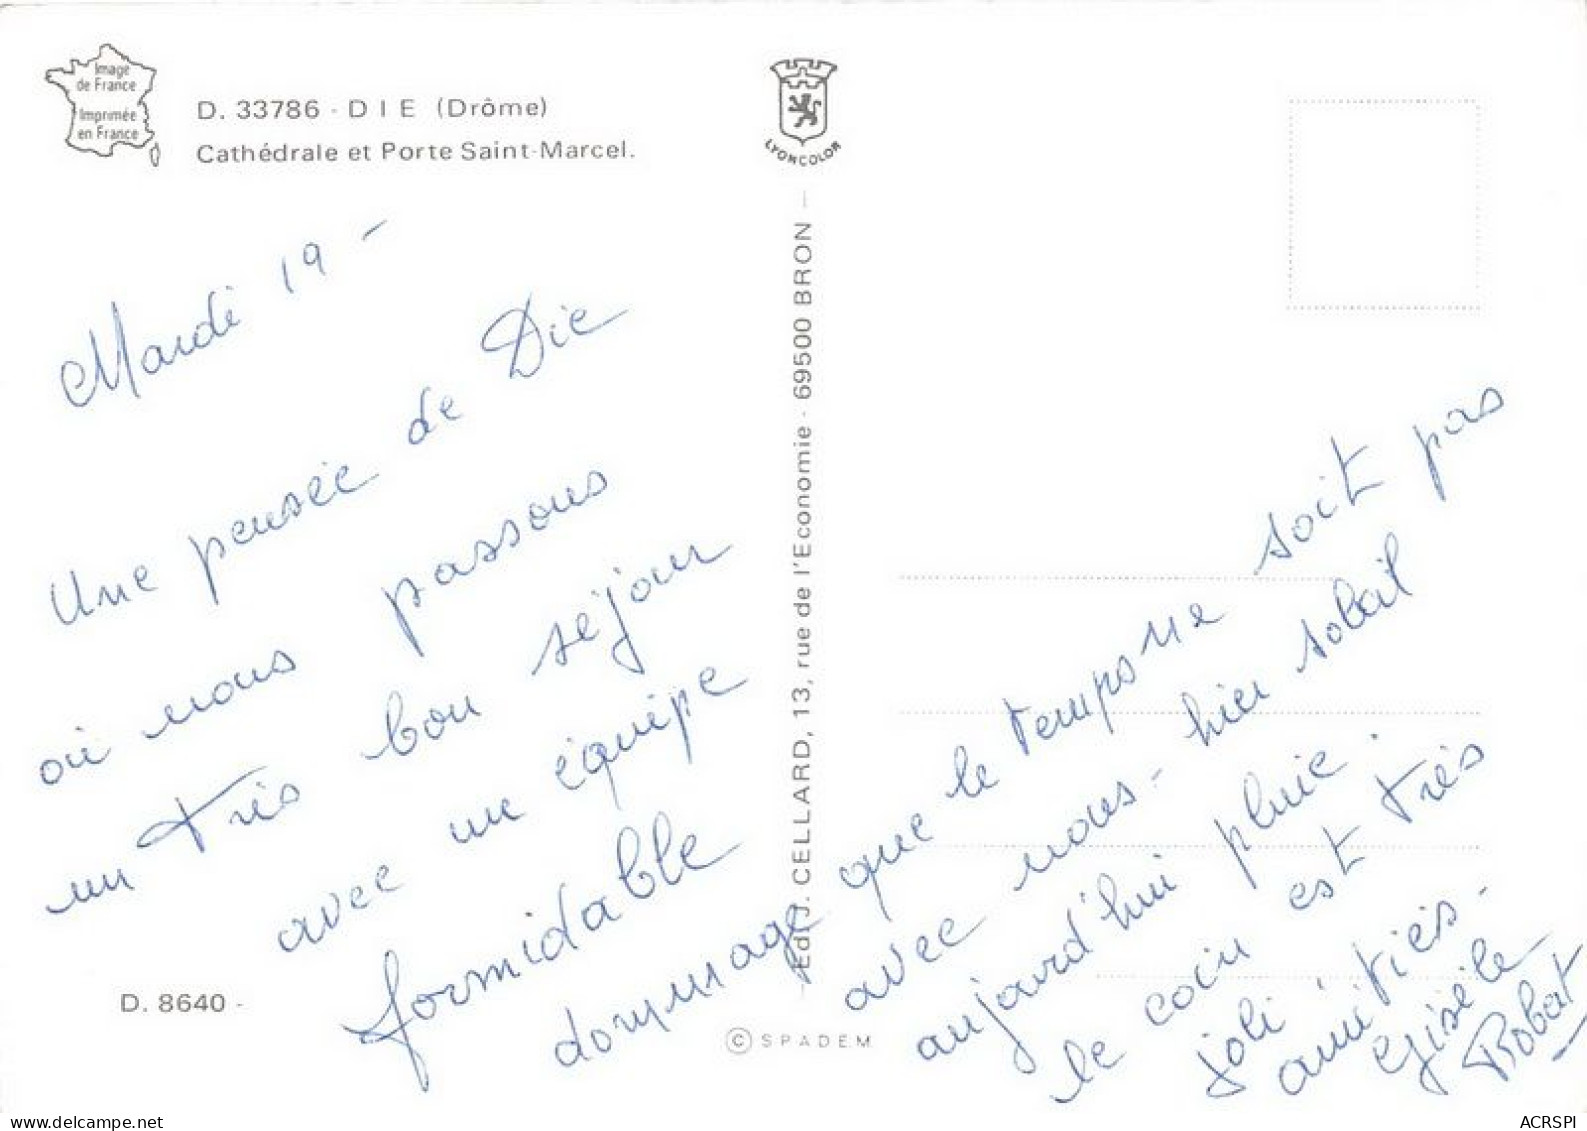 Image
de France
Imprimée
en France
D. 33786 - DIE (Drôme)
Cathédrale et Porte Saint-Marcel.
LYONCOLOR
Mardi 19 -
Une pensée de Die
où nous passons
un très bon séjour
avec une équipe
formidable
dommage que le temps ne soit pas
avec nous - hier soleil
aujourd'hui pluie.
le coin est très
joli. amitiés -
Gisèle
Robert
Ed. J. CELLARD, 13, rue de l'Economie - 69500 BRON —
D. 8640 -
© SPADEM
www.delcampe.net
ACRSPI